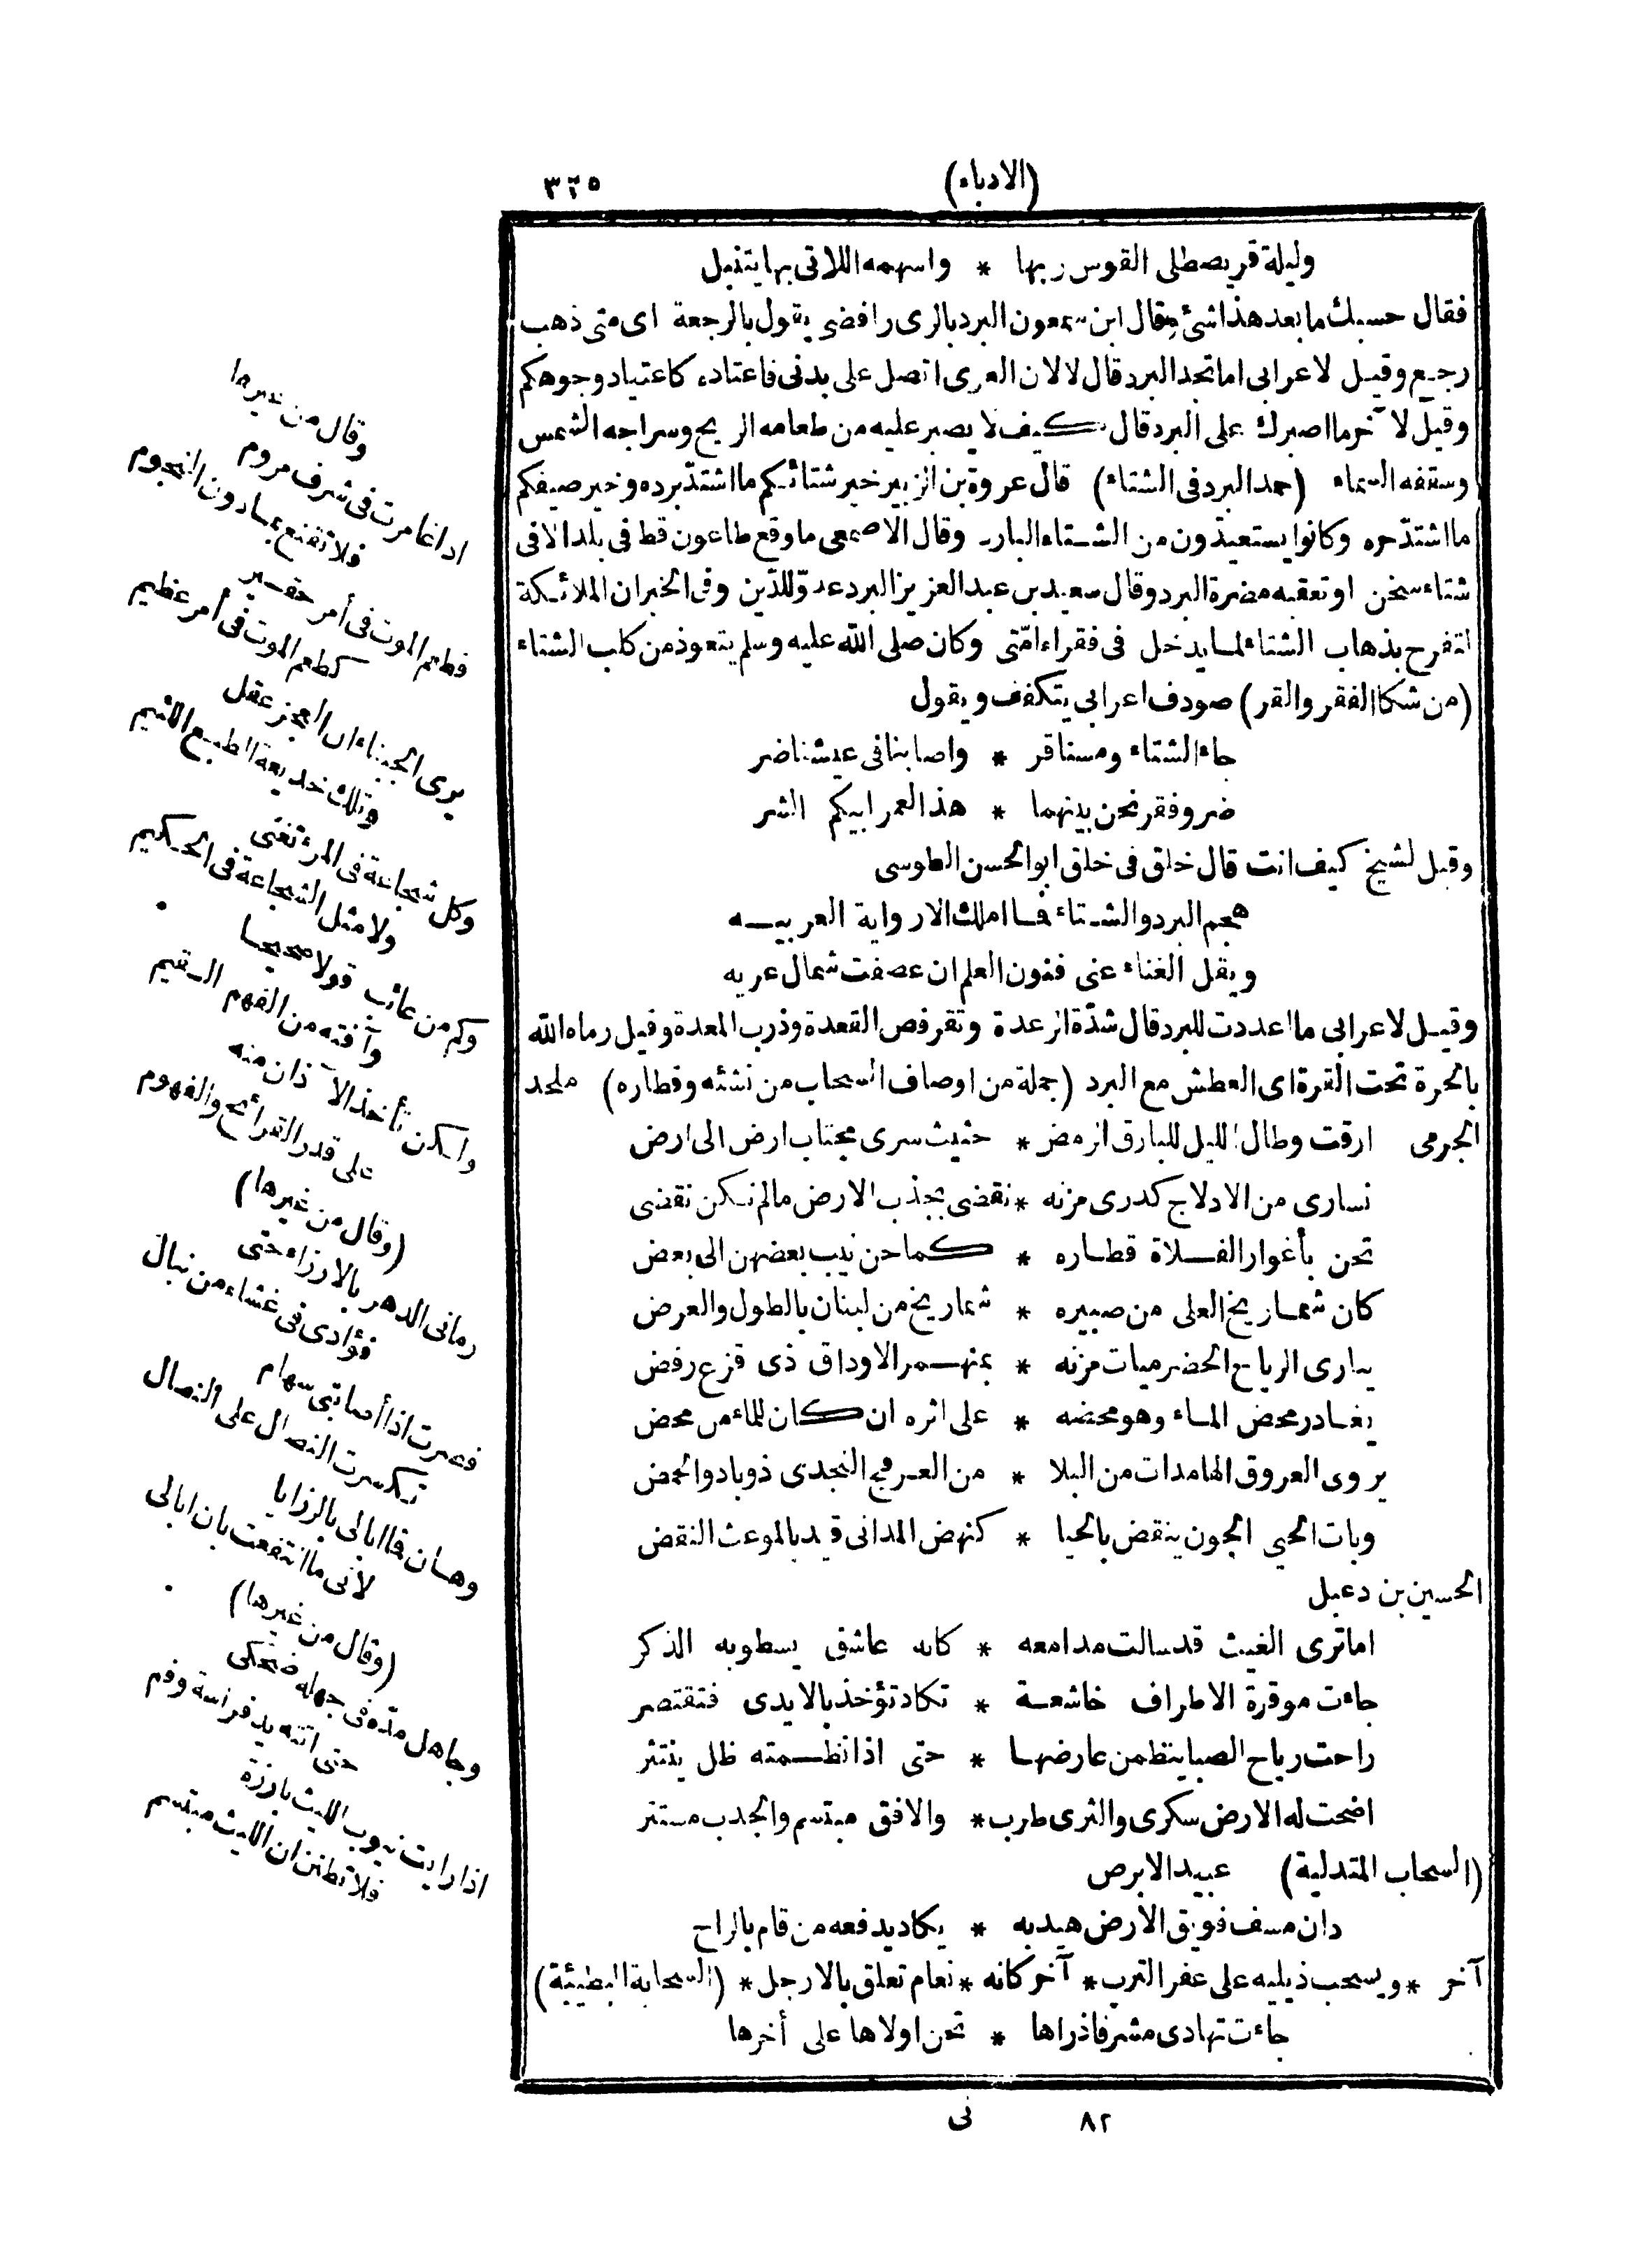 (الادباء)
٣٢٥
وليلة قر يصطلى القوس ربها * واسهمه اللاتى بها يتنبل
فقال حسبك ما بعد هذا شئ وقال ابن سمعون البرد بالرى رافضى يقول بالرجعة اى متى ذهب
رجع وقيل لاعرابى اما تجد البرد قال لا لان العرى اتصل على بدنى فاعتاده كاعتياد وجوهكم
وقيل لآخر ما اصبرك على البرد قال كيف لا يصبر عليه من طعامه الريح وسراجه الشمس
وسقفه السماء (حمد البرد فى الشتاء) قال عروة بن الزبير خير شتائكم ما اشتد برده وخير صيفكم
ما اشتدّ حره وكانوا يستعيذون من الشتاء البارد وقال الاصمعى ما وقع طاعون قط فى بلد الا فى
شتاء سخن او تعقبه مضرة البرد وقال سعيد بن عبد العزيز البرد عدوّ للدّين وفى الخبر ان الملائكة
لتفرح بذهاب الشتاء لما يدخل فى فقراء امّتى وكان صلى الله عليه وسلم يتعوذ من كلب الشتاء
(من شكا الفقر والقر) صودف اعرابى يتكفف ويقول
جاء الشتاء ومسنا قر * واصابنا فى عيشنا ضر
ضر وفقر نحن بينهما * هذا لعمر ابيكم الشر
وقيل لشيخ كيف انت قال خلق فى خلق ابو الحسن الطوسى
هجم البرد والشتاء فما املك الا رواية العربيه
ويقل الغناء عنى فنون العلم ان عصفت شمال عريه
وقيل لاعرابى ما اعددت للبرد قال شدّة الرعدة وتقرفص القعدة وذرب المعدة وقيل رماه الله
بالحرة تحت القرة اى العطش مع البرد (جملة من اوصاف السحاب من نشئه وقطاره) ملحد
الجرمى ارقت وطال الليل للبارق الرمض * حثيث سرى مجتاب ارض الى ارض
نسارى من الادلاج كدرى مزنه * نقضى بجذب الارض ما لم نكن نقضى
تحن بأغوار الفلاة قطاره * كما حن نيب بعضهن الى بعض
كان شماريخ العلى من صبيره * شماريخ من لبنان بالطول والعرض
يبارى الرياح الحضرميات مزنه * بمنهمر الاوداق ذى قزع رفض
يغادر محض الماء وهو محضه * على اثره ان كان للماء من محض
يروى العروق الهامدات من البلا * من العرفج النجدى ذو باد والحمض
وبات الحبى الجون ينقض بالحيا * كنهض المدانى قيد بالموعث النقض
الحسين بن دعبل
اما ترى الغيث قد سالت مدامعه * كانه عاشق يسطو به الذكر
جاءت موقرة الاطراف خاشعة * تكاد تؤخذ بالايدى فتقتصر
راحت رياح الصبا ينظمن عارضها * حتى اذا نظمته ظل ينتثر
اضحت له الارض سكرى والثرى طرب * والافق مبتسم والجدب مستتر
(السحاب المتدلية) عبيد الابرص
دان مسف فويق الارض هيدبه * يكاد يدفعه من قام بالراح
آخر * ويسحب ذيليه على عفر الترب * آخر كانه * نعام تعلق بالارجل * (السحابة البطيئة)
جاءت تهادى مشرفا ذراها * تحن اولاها على أخرها
٨٢
نى
وقال من غيرها
اذا غامرت فى شرف مروم
فلا تقنع بمادون النجوم
فطعم الموت فى أمر حقير
كطعم الموت فى أمر عظيم
يرى الجبناء ان العجز عقل
وتلك خديعة الطبع اللئيم
وكل شجاعة فى المرء تغنى
ولا مثل الشجاعة فى الحكيم
وكم من عائب قولا صحيحا
وآفته من الفهم السقيم
ولكن تأخذ الآذان منه
على قدر القرائح والفهوم
(وقال من غيرها)
رمانى الدهر بالارزاء حتى
فؤادى فى غشاء من نبال
فصرت اذا أصابتنى سهام
تكسرت النصال على النصال
وهان فما ابالى بالرزايا
لأنى ما انتفعت بان ابالى
(وقال من غيرها)
وجاهل مدّه فى جهله ضحكى
حتى اتته يد فراسة وفم
اذا رايت نيوب الليث بارزة
فلا تظنن ان الليث مبتسم